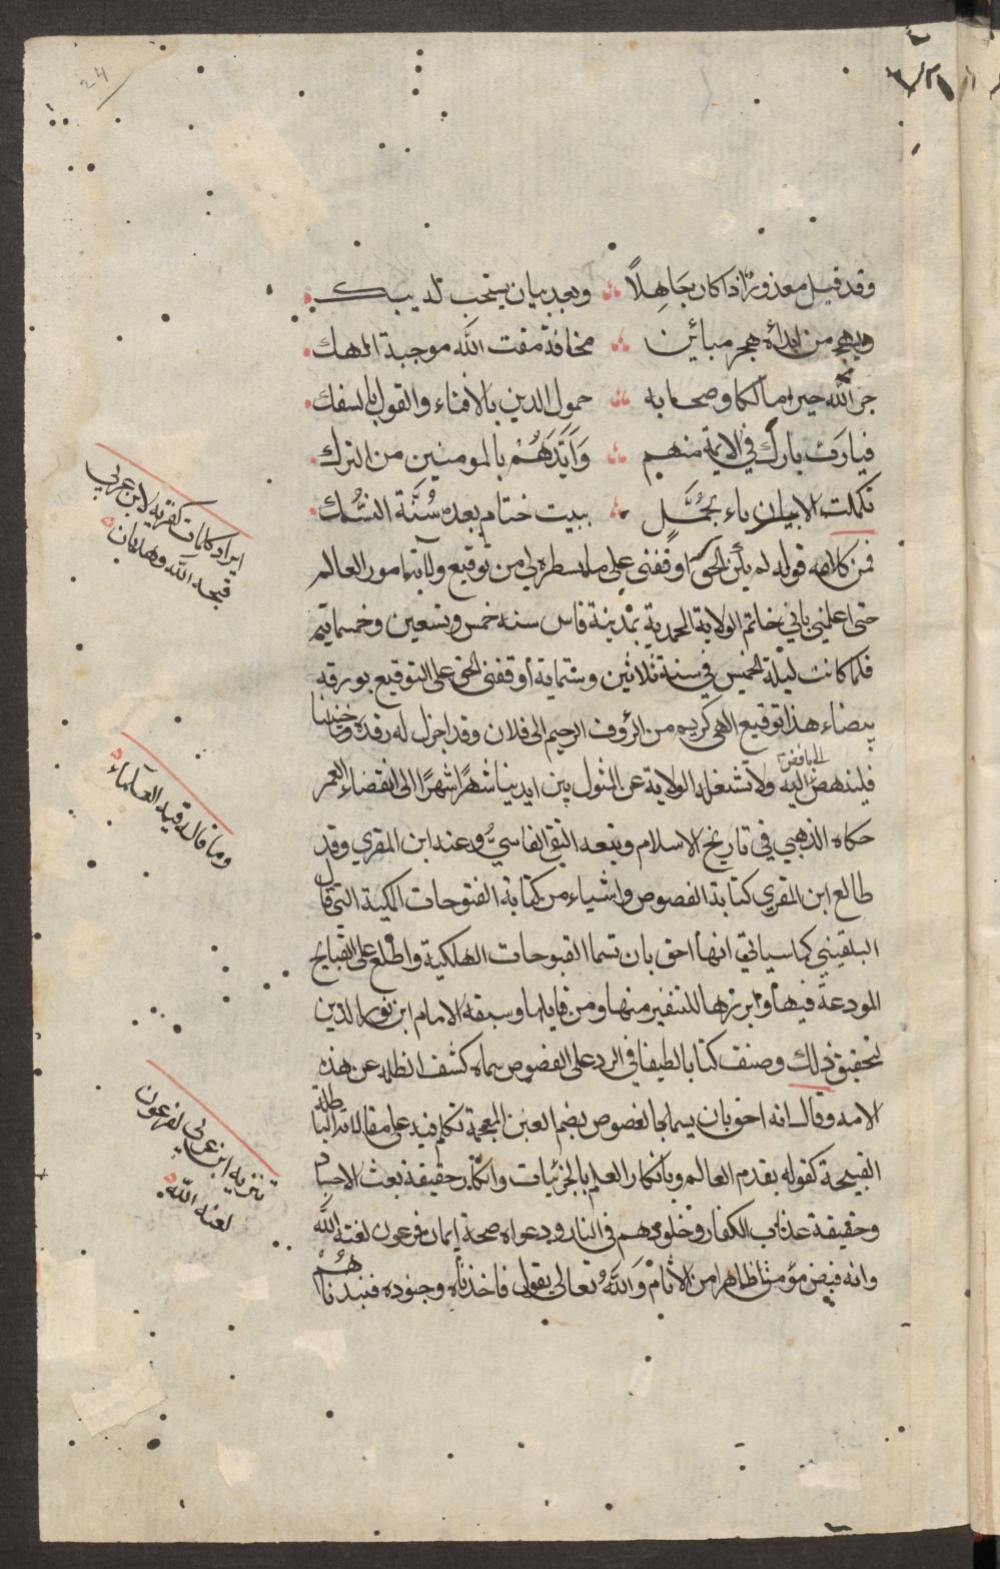 24
وقد قيل معذورًا اذا كان جاهلًا ؞ وبعد بيان يستحب لديبك
ويهجر من ابداه هجر مبائن ؞ مخافة مقت الله موجبة المهلك
جزى الله خيرا مالكا وصحابه ؞ حمول الدين بالافتاء والقول بالسفك
فيا رب بارك في الائمة منهم ؞ وَأَيِّدْهُمْ بالمومنين من الترك
تكملت الابيات باء بجُمَّل ؞ ببيت ختام بعده سُنَّة النسك
فمن كلامه قوله لم يكن الحق اوقفني على ما سطره لي من توقيع ولايتي امور العالم
حتى اعلمني باني خاتم الولاية المحمدية بمدينة فاس سنه خمس وتسعين وخمسماية
فلما كانت ليلة الخميس في سنة ثلاثين وستماية أوقفني الحق على التوقيع بورقه
بيضاء هذا توقيع الهي كريم من الرؤف الرحيم الى فلان وقد اجزل له رفده وما خيبنا
فلينهض الى ما فوض اليه ولا تشغله الولاية عن المثول بين ايدينا شهرًا شهرًا الى انقضاء العمر
حكاه الذهبي في تاريخ الاسلام وتبعه التقي الفاسيُّ وعنه ابن المقري وقد
طالع ابن المقري كتابة الفصوص واشياء من كتابة الفتوحات المكية التي قال
البلقيني كما سياتي انها احق بان تسما القبوحات الهلكية واطلع على القبايح
المودعة فيها وابرزها للتنفير منها ومن قايلها وسبقه الامام ابن نور الدين
لتحقيق ذلك وصنف كتابا لطيفا في الرد على الفصوص سماه كشف الظلمه عن هذه
الامه وقال انه احق بان يسما بالغصوص بضم الغين المعجمة تكلم فيه على مقالاته الباطلة
القبيحة كقوله بقدم العالم وبانكار العلم بالجزئيات وانكار حقيقة بعث الاجساد
وحقيقة عذاب الكفار وخلودهم في النار ودعواه صحة إيمان فرعون لعنه الله
وانه قبض مؤمنا ظاهرا من الأثام وَاللهُ تعالى يقول فاخذناه وجنوده فنبذناهُمْ
ايراد كلمات كفريه لابن عربي
قبحه الله وهامان
وما قال فيه العلماء
تنزيه ابن عربي لفرعون
لعنه الله